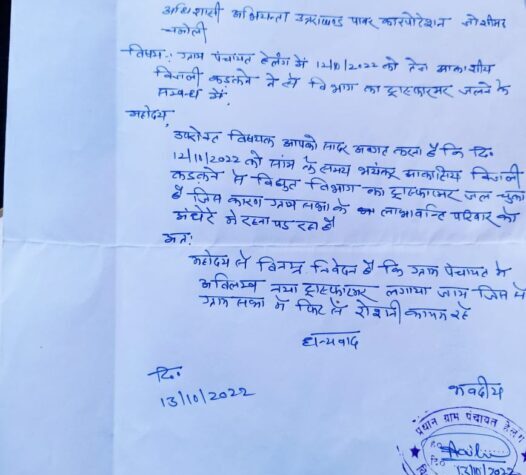 अधिशासी अभियन्ता उत्तराखण्ड पावर कारपोरेशन जोशीमठ
चमोली
विषय:- ग्राम पंचायत हेलंग में 12/10/2022 को तेज आकाशीय
बिजली कडकने से विभाग का ट्रांसफारमर जलने के
सम्बन्ध में।
महोदय,
उपरोक्त विषयक आपको सादर अवगत करना है कि दि०
12/10/2022 को सांम के समय भयंकर आकाशिय बिजली
कडकने से विद्युत विभाग का ट्रांसफारमर जल चुका
है जिस कारण ग्राम सभा के लाभार्न्वित परिवार को
अंधेरे में रहना पड रहा है
अत:
महोदय से विनम्र निवेदन है कि ग्राम पंचायत में
अविलम्ब नया ट्रांसफारमर लगाया जाय जिस से
ग्राम सभा में फिर से रोशनी कायम रहे
धन्यवाद
दि०
13/10/2022
भवदीय
प्रधान ग्राम पंचायत हेलं
13/10/2022